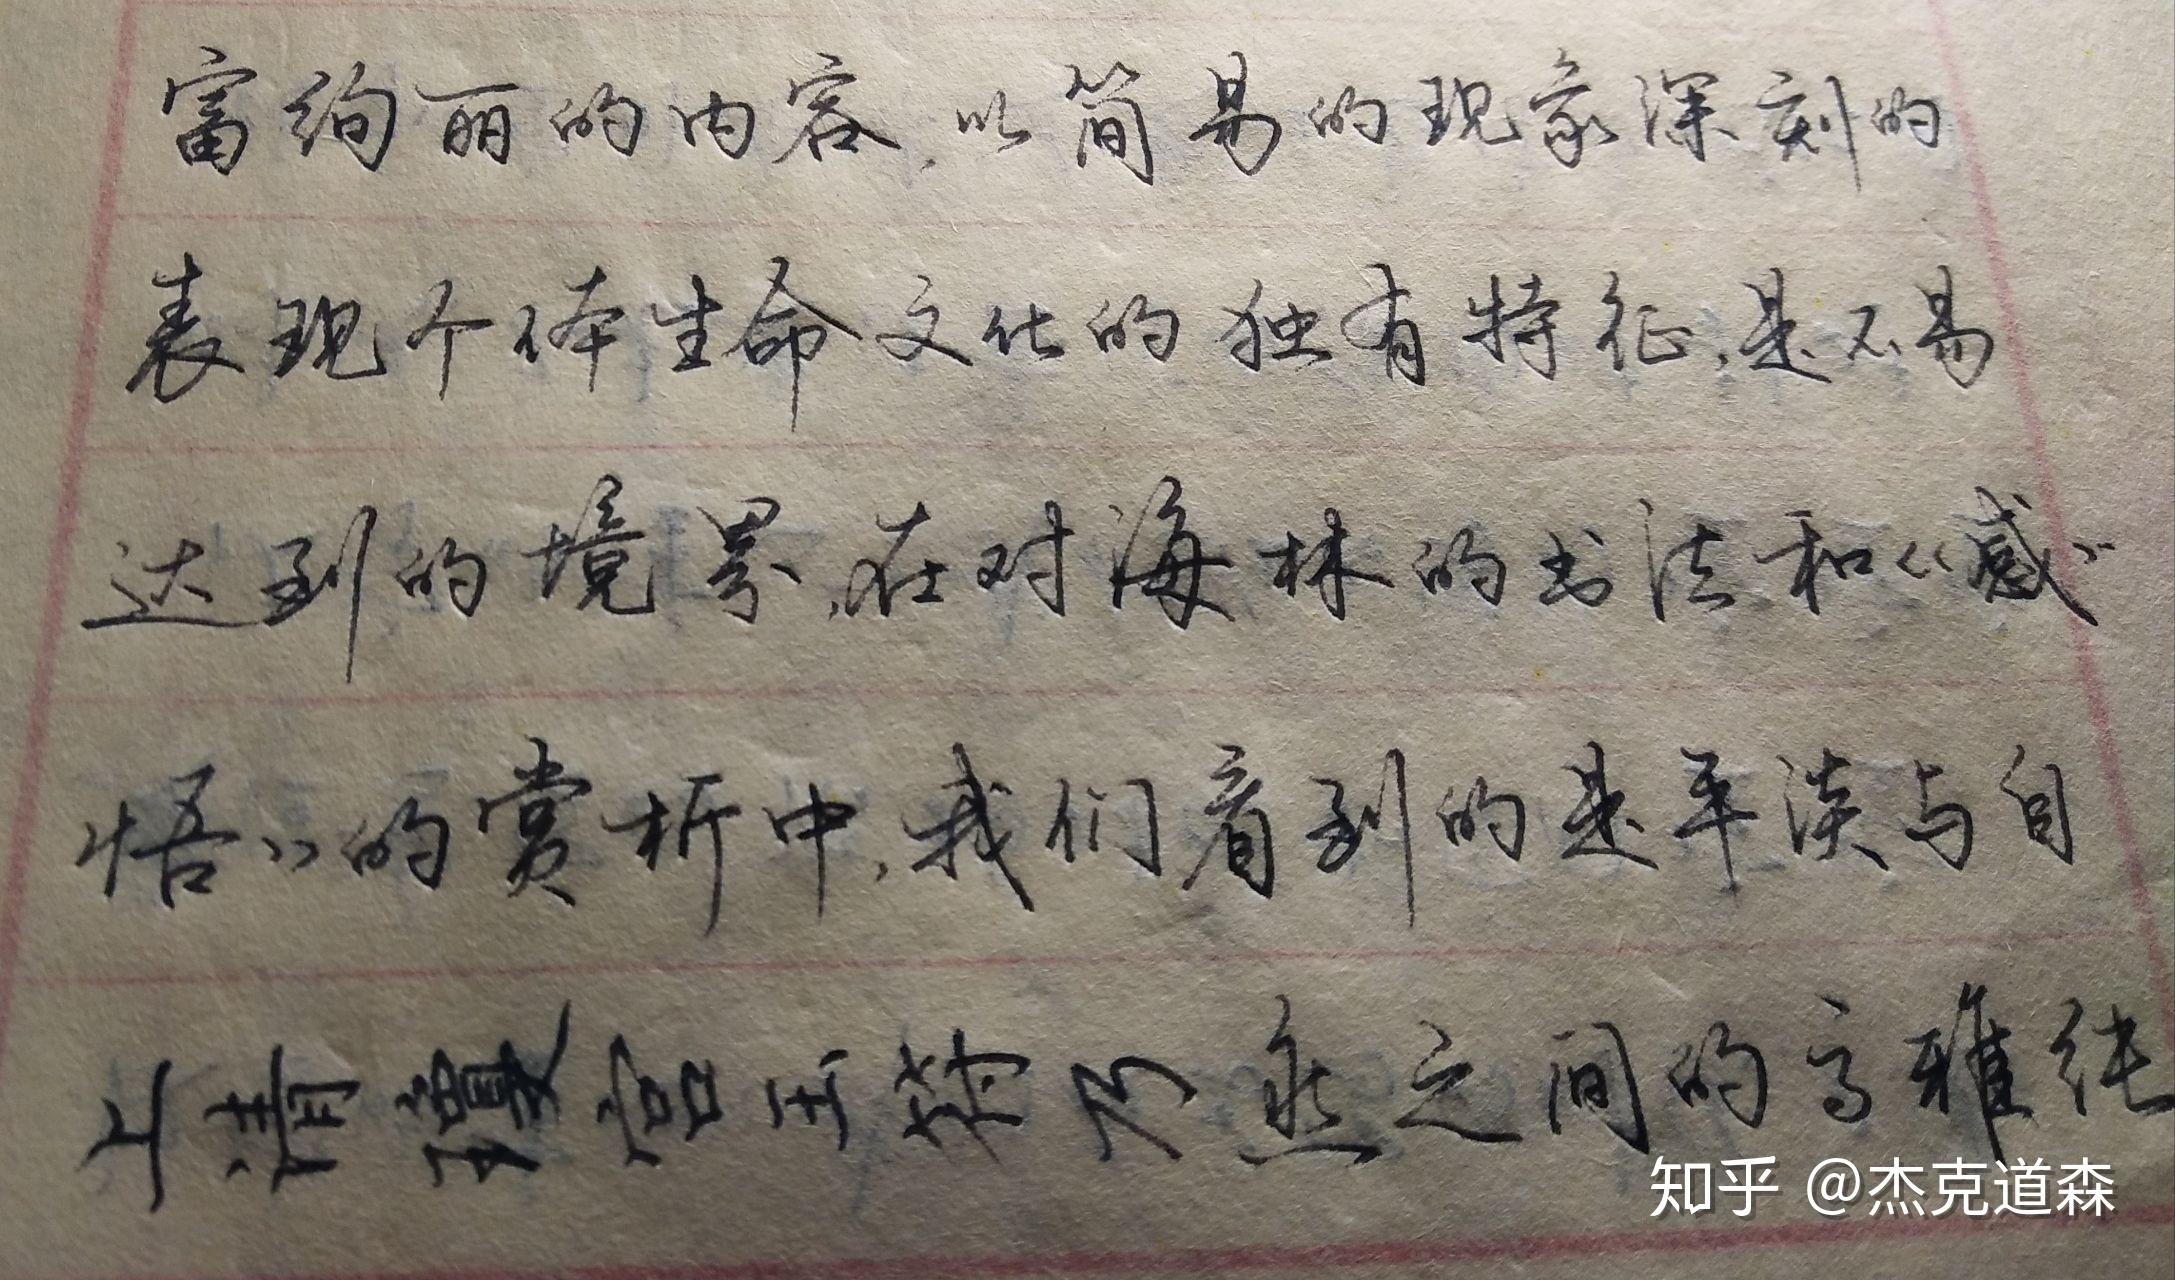 富绚丽的内容，以简易的现象深刻的
表现个体生命文化的独有特征，是不易
达到的境界，在对海林的书法和《感
悟》的赏析中，我们看到的是平淡与自
然之间的高雅纯
知乎 @杰克道森